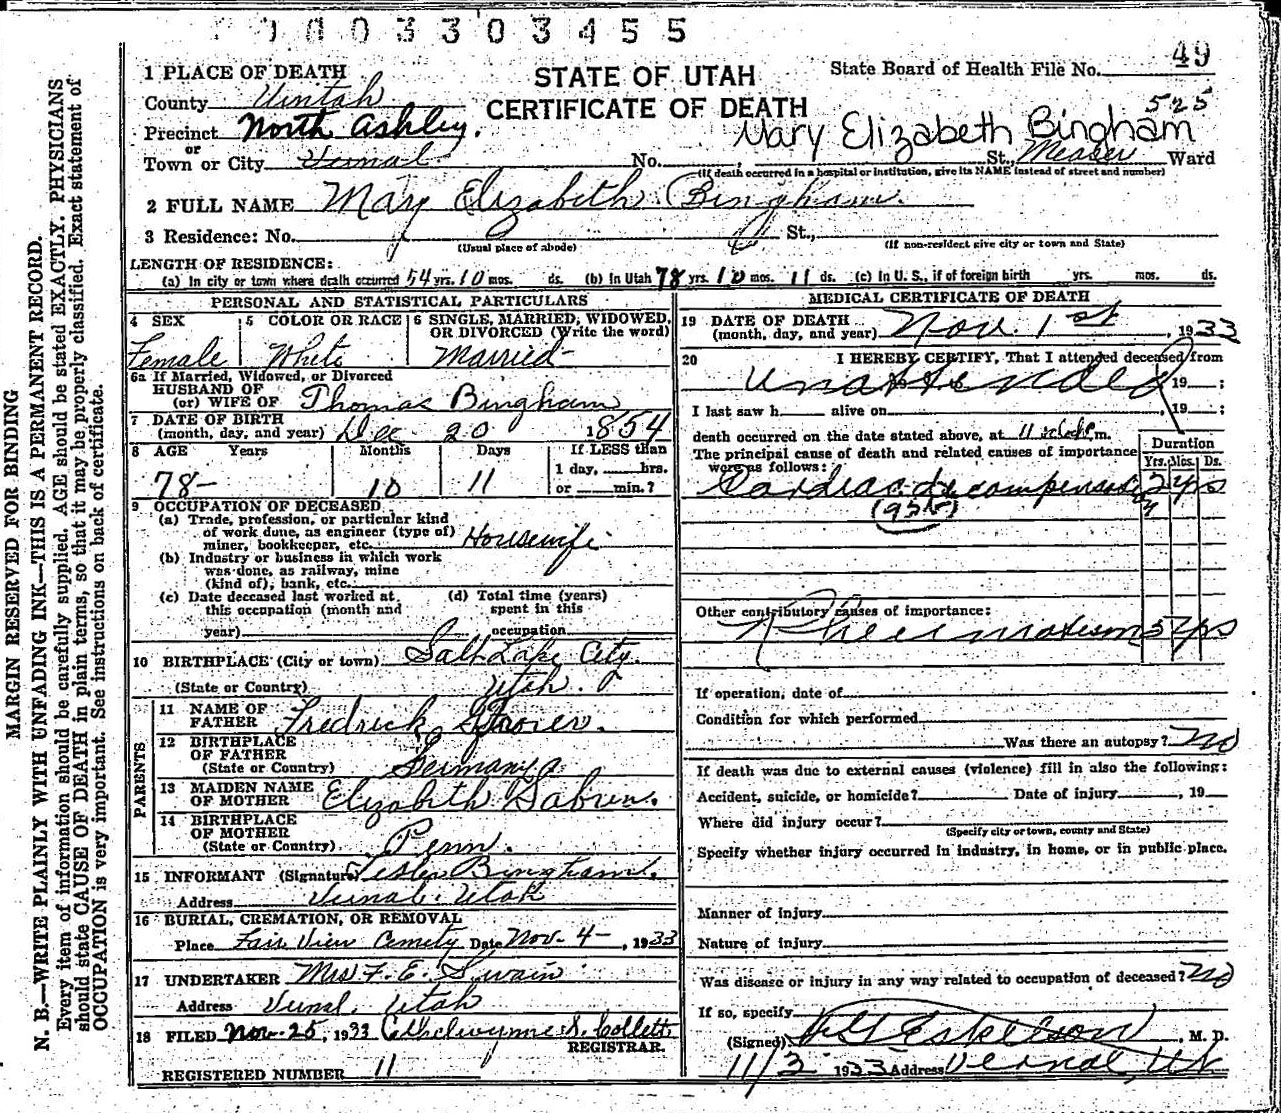 0 0 3 3 0 3 4 5 5
1 PLACE OF DEATH
STATE OF UTAH
CERTIFICATE OF DEATH
State Board of Health File No. 49
525
County Uintah
Precinct North Ashley.
or
Town or City Vernal.
Mary Elizabeth Bingham
No. , St., Measer Ward
(If death occurred in a hospital or institution, give its NAME instead of street and number)
2 FULL NAME Mary Elizabeth Bingham.
3 Residence: No. St.,
(Usual place of abode) (If non-resident give city or town and State)
LENGTH OF RESIDENCE:
(a) In city or town where death occurred 54 yrs. 10 mos. ds. (b) In Utah 78 yrs. 10 mos. 11 ds. (c) In U. S., if of foreign birth yrs. mos. ds.
PERSONAL AND STATISTICAL PARTICULARS
4 SEX 5 COLOR OR RACE 6 SINGLE, MARRIED, WIDOWED, OR DIVORCED (Write the word)
Female White Married
6a If Married, Widowed, or Divorced
HUSBAND OF
(or) WIFE OF Thomas Bingham
7 DATE OF BIRTH
(month, day, and year) Dec 20 1854
8 AGE Years Months Days If LESS than
1 day, hrs.
78 10 11 or min.?
9 OCCUPATION OF DECEASED
(a) Trade, profession, or particular kind
of work done, as engineer (type of)
miner, bookkeeper, etc. Housewife
(b) Industry or business in which work
was done, as railway, mine
(kind of), bank, etc.
(c) Date deceased last worked at
this occupation (month and
year)
(d) Total time (years)
spent in this
occupation
10 BIRTHPLACE (City or town) Salt Lake City.
(State or Country) Utah.
PARENTS
11 NAME OF
FATHER Fredrick
12 BIRTHPLACE
OF FATHER
(State or Country) Germany
13 MAIDEN NAME
OF MOTHER Elizabeth
14 BIRTHPLACE
OF MOTHER
(State or Country) Penn.
15 INFORMANT (Signature) Bingham.
Address Vernal, Utah
16 BURIAL, CREMATION, OR REMOVAL
Place Fair View Cemety Date Nov. 4 , 1933
17 UNDERTAKER Mrs F. E. Swain
Address Vernal, Utah
18 FILED Nov. 25, 1933 S. Collett
REGISTRAR.
REGISTERED NUMBER 11
MEDICAL CERTIFICATE OF DEATH
19 DATE OF DEATH
(month, day, and year) Nov. 1st , 1933
20 I HEREBY CERTIFY, That I attended deceased from
unattended 19 ;
I last saw h alive on , 19 ;
death occurred on the date stated above, at 11 o'clock m.
The principal cause of death and related causes of importance
were as follows:
Duration
Yrs. Mos. Ds.
Cardiac decompensation 2 yrs
(95b)
Other contributory causes of importance:
Rheumatism 5 yrs
If operation, date of
Condition for which performed
Was there an autopsy? No
If death was due to external causes (violence) fill in also the following:
Accident, suicide, or homicide? Date of injury , 19
Where did injury occur?
(Specify city or town, county and State)
Specify whether injury occurred in industry, in home, or in public place.
Manner of injury
Nature of injury
Was disease or injury in any way related to occupation of deceased? No
If so, specify
(Signed) Eskelson , M. D.
11/3 1933 Address Vernal, Ut
MARGIN RESERVED FOR BINDING
N. B.—WRITE PLAINLY WITH UNFADING INK—THIS IS A PERMANENT RECORD.
Every item of information should be carefully supplied. AGE should be stated EXACTLY. PHYSICIANS
should state CAUSE OF DEATH in plain terms, so that it may be properly classified. Exact statement of
OCCUPATION is very important. See instructions on back of certificate.